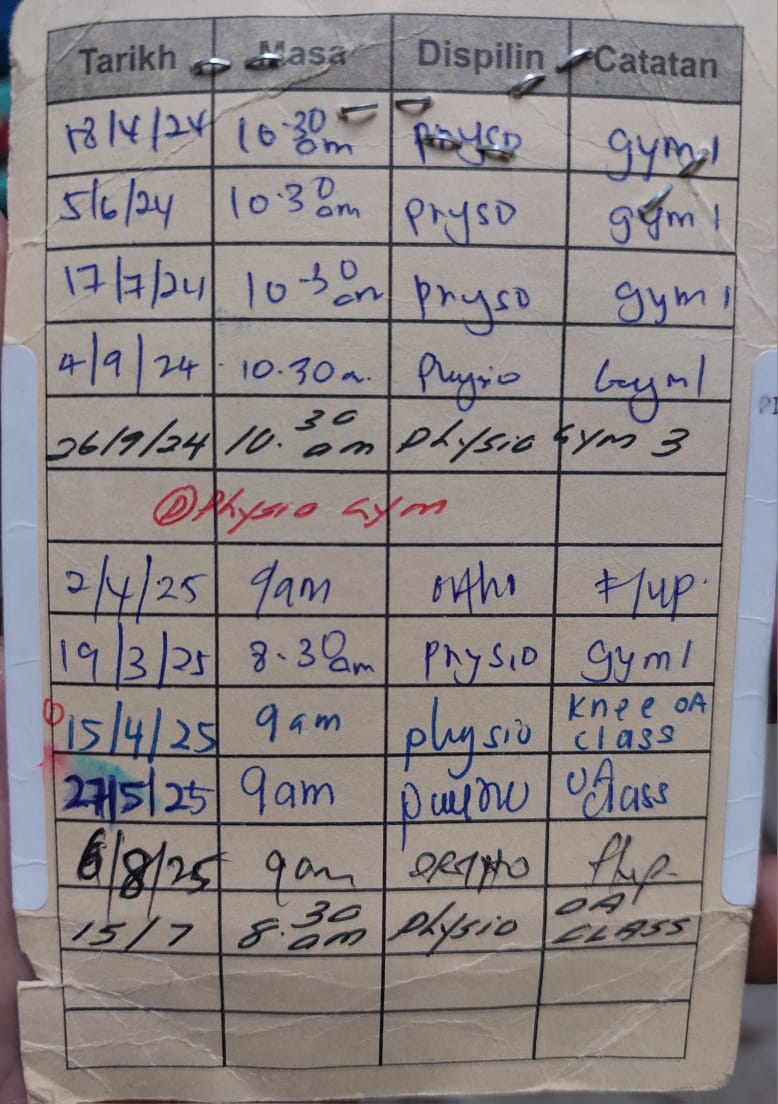 Tarikh Masa Dispilin Catatan
18/4/24 10.30 am physo gym 1
5/6/24 10.30 am physo gym 1
17/7/24 10.30 am physo gym 1
4/9/24 10.30 a. Physio Gym 1
26/9/24 10.30 am physio GYM 3
D Physio Gym
2/4/25 9am ortho F/up.
19/3/25 8.30 am physio gym 1
15/4/25 9am physio Knee OA class
27/5/25 9am physio OA class
6/8/25 9am ORTHO f/up
15/7 8.30 am physio OA CLASS